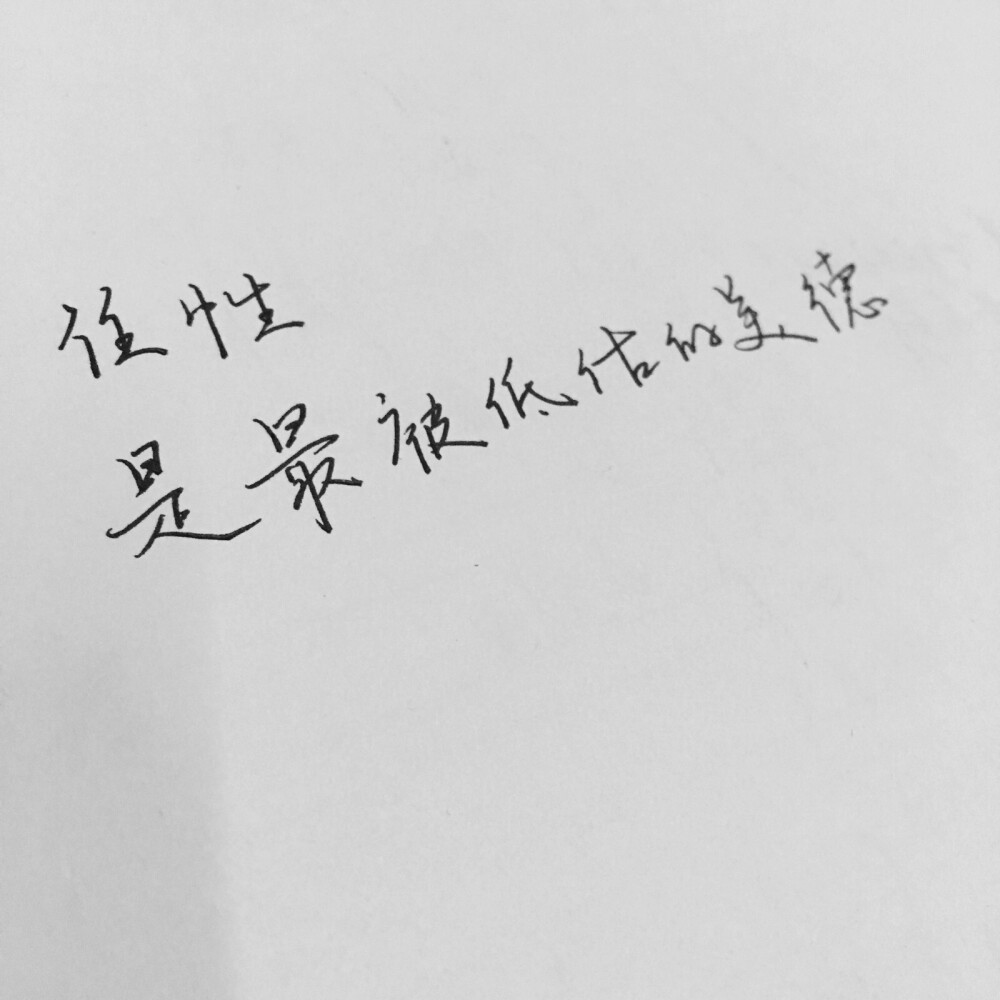 任性
是最被低估的美德